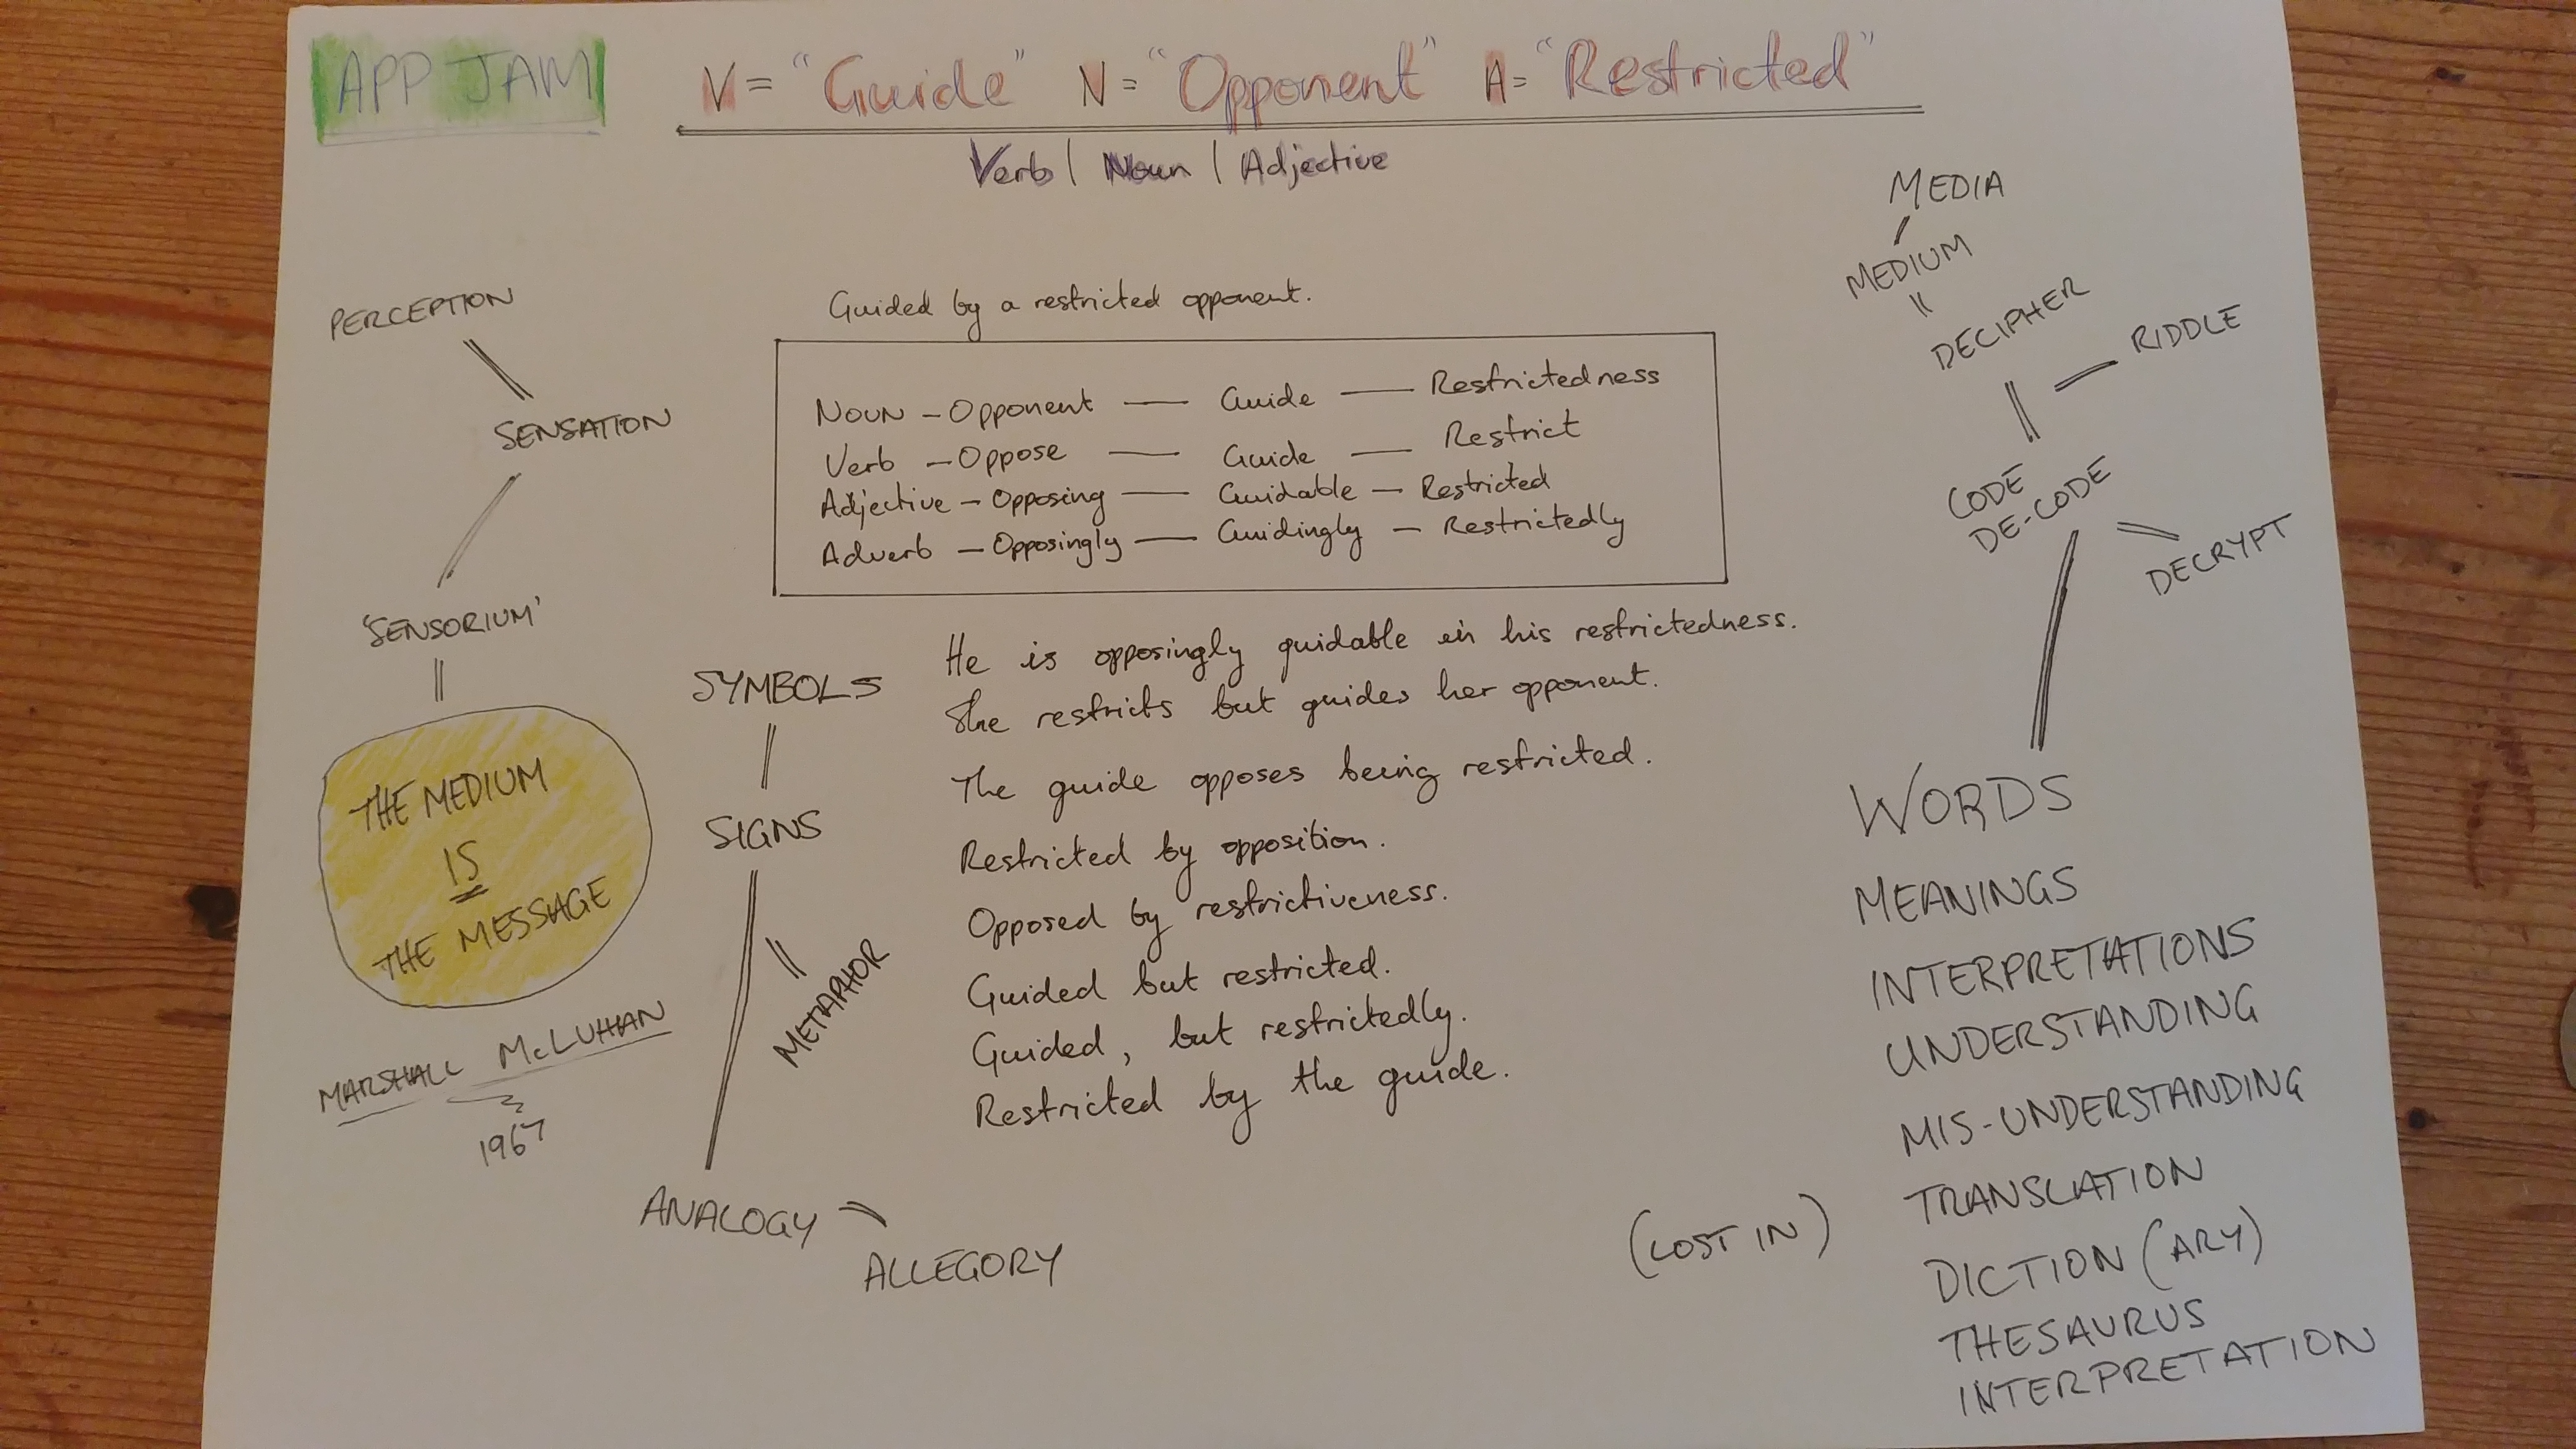 APP JAM
V = "Guide" N = "Opponent" A = "Restricted"
Verb | Noun | Adjective
PERCEPTION
SENSATION
'SENSORIUM'
THE MEDIUM
IS
THE MESSAGE
MARSHALL McLUHAN
1967
SYMBOLS
SIGNS
METAPHOR
ANALOGY
ALLEGORY
Guided by a restricted opponent.
NOUN - Opponent — Guide — Restrictedness
Verb - Oppose — Guide — Restrict
Adjective - Opposing — Guidable — Restricted
Adverb - Opposingly — Guidingly — Restrictedly
He is opposingly guidable in his restrictedness.
She restricts but guides her opponent.
The guide opposes being restricted.
Restricted by opposition.
Opposed by restrictiveness.
Guided but restricted.
Guided, but restrictedly.
Restricted by the guide.
MEDIA
MEDIUM
DECIPHER
RIDDLE
CODE
DE-CODE
DECRYPT
WORDS
MEANINGS
INTERPRETATIONS
UNDERSTANDING
MIS-UNDERSTANDING
(LOST IN) TRANSLATION
DICTION (ARY)
THESAURUS
INTERPRETATION